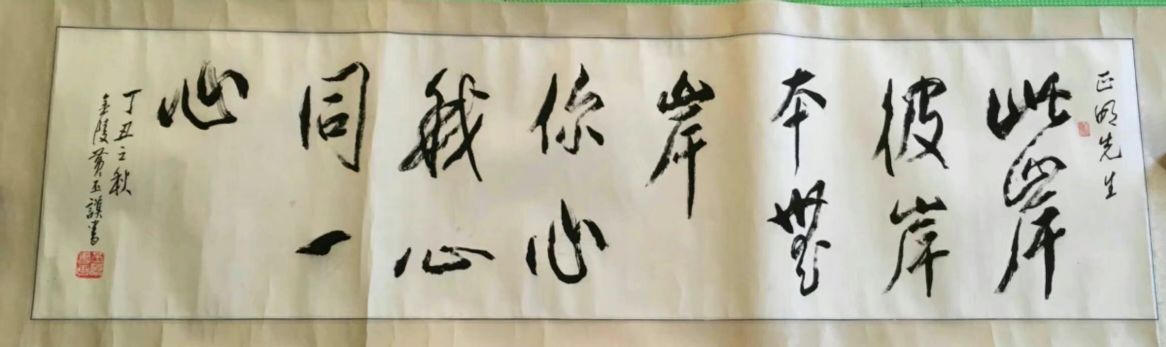 正明先生
此岸
彼岸
本無
岸
你心
我心
同一
心
丁丑之秋
金陵黄玉謨書